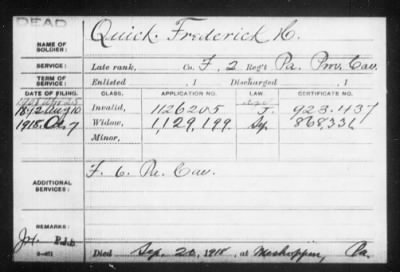 DEAD
NAME OF SOLDIER: Quick, Frederick H.
SERVICE: Late rank, Co. F, 2 Reg't Pa. Prov. Cav.
TERM OF SERVICE: Enlisted , 1 Discharged , 1
DATE OF FILING. CLASS. APPLICATION NO. LAW. CERTIFICATE NO.
1892 Aug 10 Invalid, 1126205 J. 923.437
1918. Oc. 7 Widow, 1,129,199. Sep. 868331
Minor,
ADDITIONAL SERVICES: F. 6 Pa. Cav.
REMARKS:
Died Sep. 20, 1918, at Meshoppen, Pa.